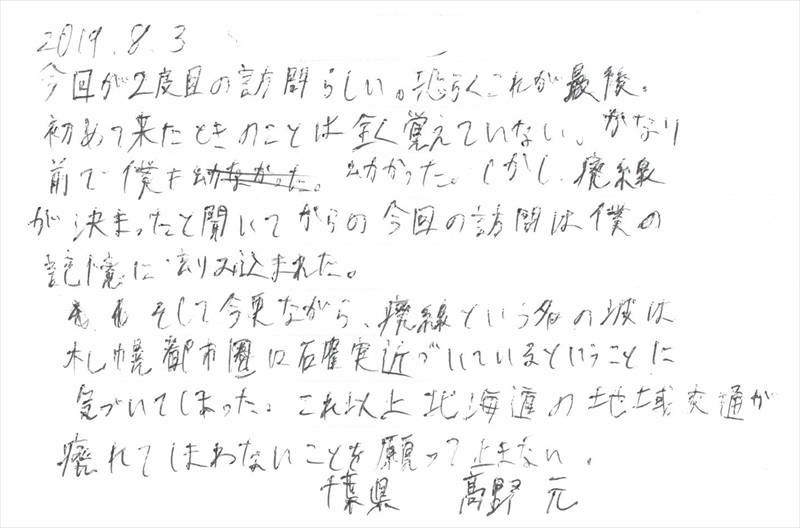 2019.8.3
今回が2度目の訪問らしい。恐らくこれが最後。
初めて来たときのことは全く覚えていない。かなり
前で僕も幼なかった。幼かった。しかし、廃線
が決まったと聞いてからの今回の訪問は僕の
記憶に刻み込まれた。
そして今更ながら、廃線という名の波は
札幌都市圏に確実近づいているということに
気づいてしまった。これ以上北海道の地域交通が
廃れてしまわないことを願って止まない。
千葉県 高野 元